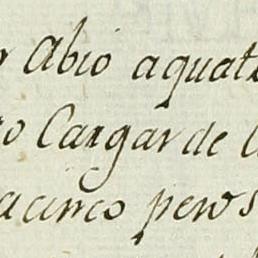 Abio aquat
Cargar de
acinco pers